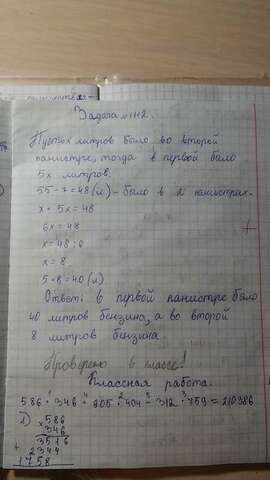 Задача №1112.
Пусть x литров было во второй
канистре, тогда в первой было
5x литров.
55-7=48(л)-было в 2 канистрах.
x+5x=48
6x=48
x=48:6
x=8
5·8=40(л)
Ответ: в первой канистре было
40 литров бензина, а во второй
8 литров бензина.
Проверено в классе!
Классная работа.
586·346+205·404-312·759=210386
1) 586
×346
3516
+2344
1758